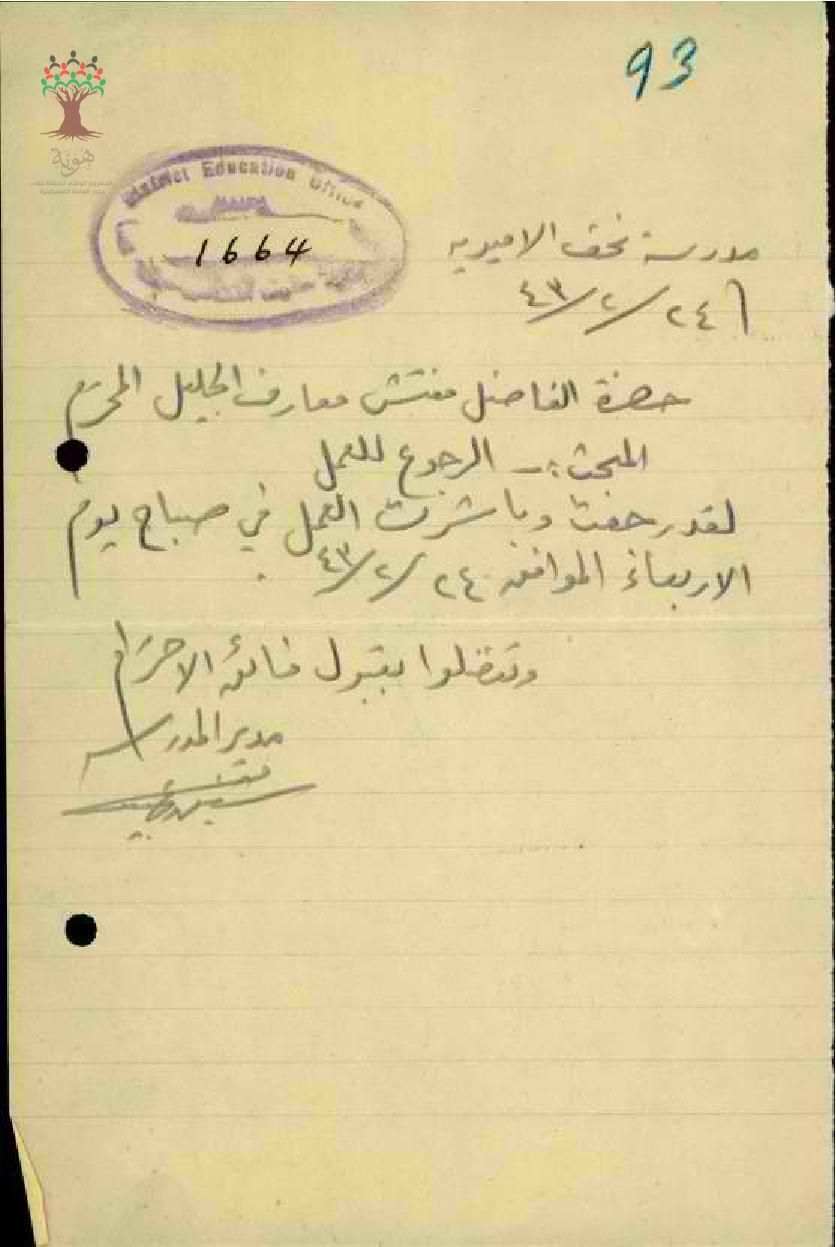 93
هوية
District Education Office
1664
مدرسة نحف الاميرية
٢٤/٢/٤٣
حضرة الفاضل مفتش معارف الجليل المحترم
المبحث :ـ الرجوع للعمل
لقد رجعت وباشرت العمل في صباح يوم
الاربعاء الموافق ٢٤/٢/٤٣.
وتفضلوا بقبول فائق الاحترام
مدير المدرسة